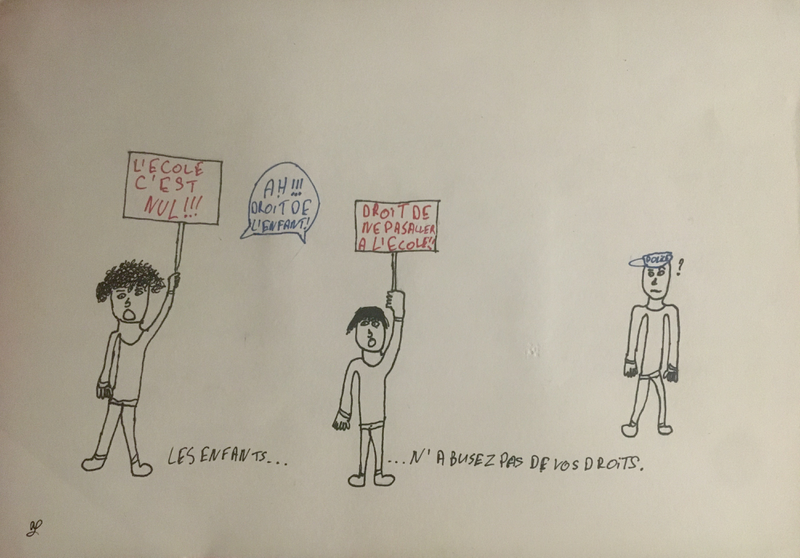 L'ECOLE
C'EST
NUL!!!
AH!!!
DROIT DE
L'ENFANT!
DROIT DE
NE PAS ALLER
A L'ECOLE!!
?
LES ENFANTS...
...N'ABUSEZ PAS DE VOS DROITS.